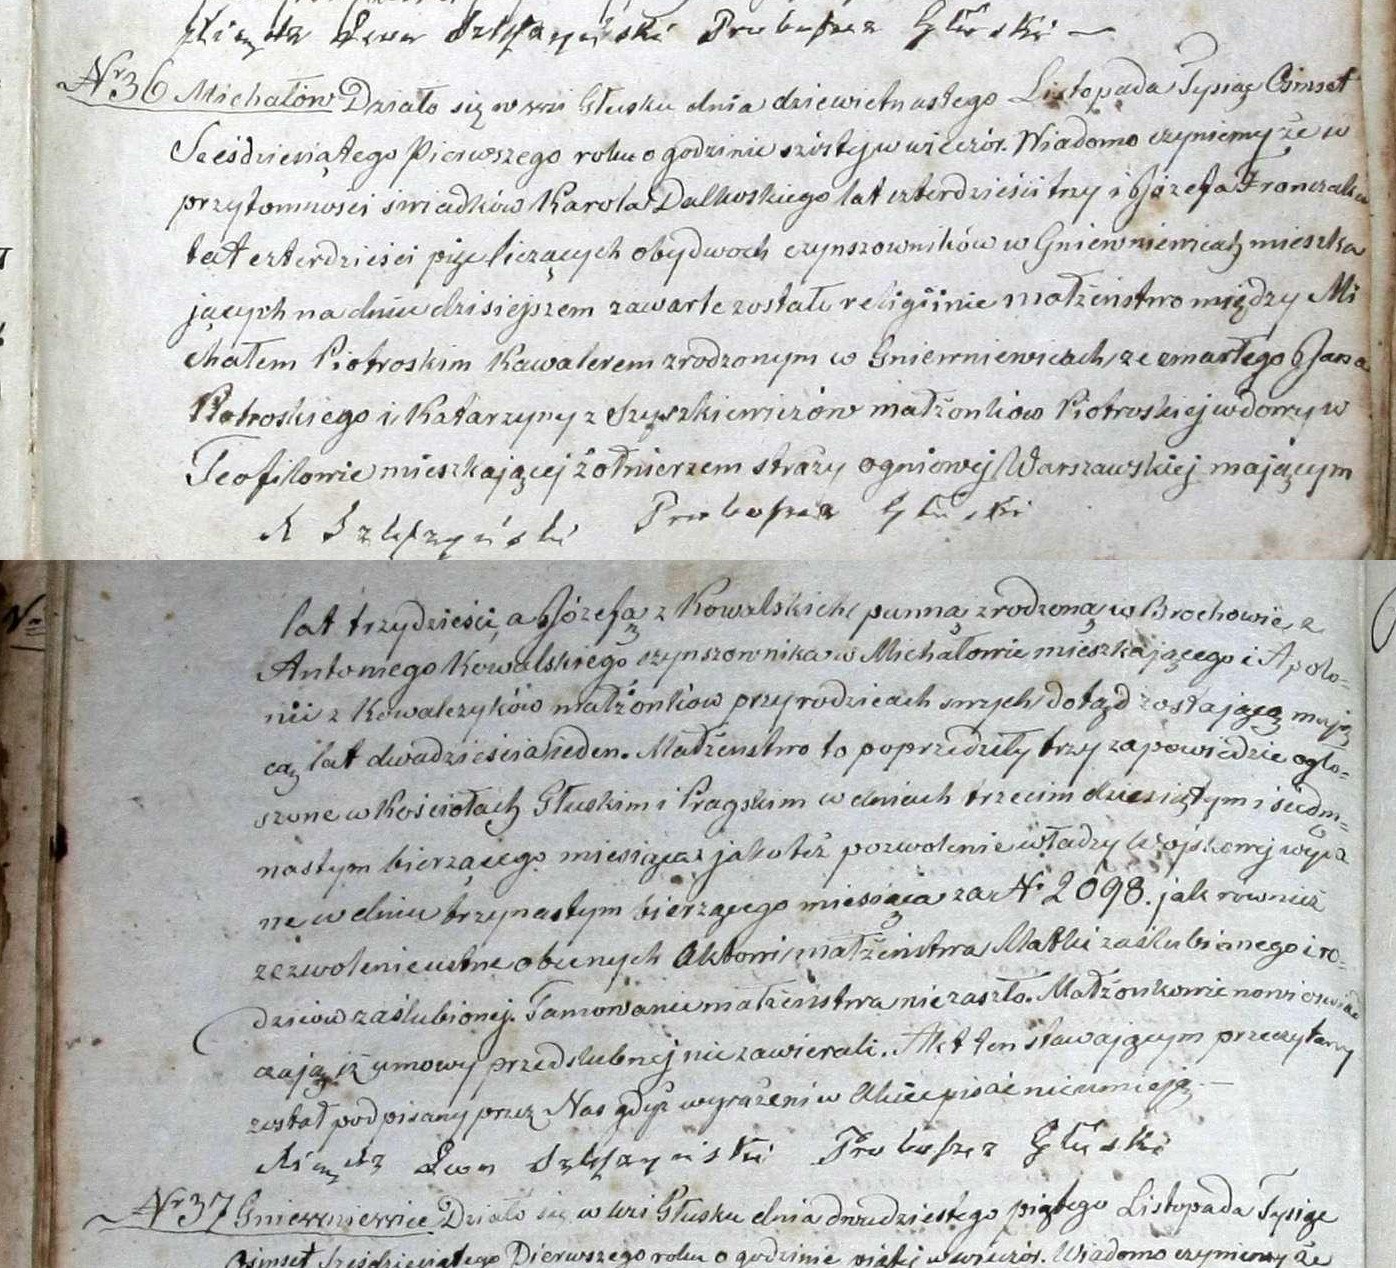 Xiądz Leon Szlepszyński Proboszcz Głuski
Nr 36 Michałów Działo się w wsi Głusku dnia dziewietnastego Listopada Tysiąc Ośmset
Sześdziesiątego Pierwszego roku o godzinie szóstej w wieczór. Wiadomo czyniemy że w
przytomności świadków Karola Dalkoskiego lat czterdzieści trzy i Józefa Fronczaka
lat czterdzieści pięć liczących obydwoch czynszowników w Gniewniewicach mieszka
jących na dniu dzisiejszem zawarte zostało religijnie małżeństwo między Mi
chałem Piotroskim Kawalerem zrodzonym w Gniewniewicach ze zmarłego Jana
Piotroskiego i Katarzyny z Szyszkiewiczów małżonków Piotroskiej wdowy w
Teofilowie mieszkającej żołnierzem straży ogniowej Warszawskiej mającym
Proboszcz Głuski
lat trzydzieści, a Józefą z Kowalskich panną zrodzoną w Brochowie, z
Antoniego Kowalskiego czynszownika w Michałowie mieszkającego i Apolo=
nii z Kowalczyków małżonków przy rodzicach swych dotąd zostającą mają
cą lat dwadzieścia jeden. Małżeństwo to poprzedziły trzy zapowiedzie ogło=
szone w Kościołach Głuskim i Pragskim w dniach trzecim dziesiątym i siedm=
nastym bierzącego miesiąca jakoteż pozwolenie władzy Wojskowej wyda
ne w dniu trzynastym bierzącego miesiąca za Nr 2098. jak również
zezwolenie ustne obecnych Aktowi małżeństwa Matki zaślubionego i ro=
dziców zaślubionej. Tamowanie małżeństwa nie zaszło. Małżonkowie nowi oswiad
czają iż umowy przedślubnej nie zawierali. Akt ten stawającym przeczytany
został podpisany przez Nas gdyż wyrażeni w Akcie pisać nie umieją.—
Xiądz Leon Szlepszyński Proboszcz Głuski
Nr 37 Gniewniewice Działo się w wsi Głusku dnia dwudziestego piątego Listopada Tysiąc
Ośmset Sześdziesiątego Pierwszego roku o godzinie piątej w wieczór. Wiadomo czyniemy że